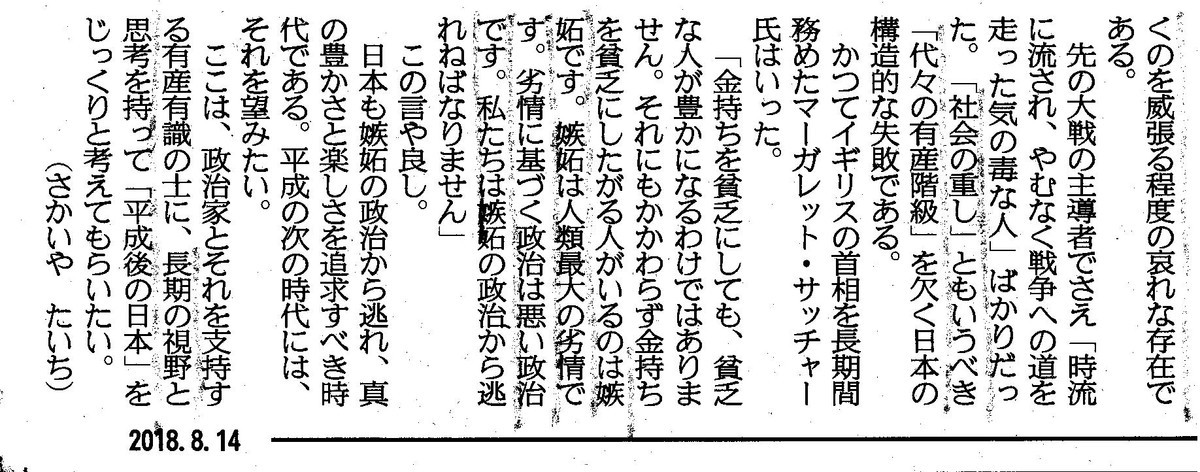 くのを威張る程度の哀れな存在で
ある。
先の大戦の主導者でさえ「時流
に流され、やむなく戦争への道を
走った気の毒な人」ばかりだっ
た。「社会の重し」ともいうべき
「代々の有産階級」を欠く日本の
構造的な失敗である。
かつてイギリスの首相を長期間
務めたマーガレット・サッチャー
氏はいった。
「金持ちを貧乏にしても、貧乏
な人が豊かになるわけではありま
せん。それにもかかわらず金持ち
を貧乏にしたがる人がいるのは嫉
妬です。嫉妬は人類最大の劣情で
す。劣情に基づく政治は悪い政治
です。私たちは嫉妬の政治から逃
れねばなりません」
この言や良し。
日本も嫉妬の政治から逃れ、真
の豊かさと楽しさを追求すべき時
代である。平成の次の時代には、
それを望みたい。
ここは、政治家とそれを支持す
る有産有識の士に、長期の視野と
思考を持って「平成後の日本」を
じっくりと考えてもらいたい。
（さかいや　たいち）
2018.8.14